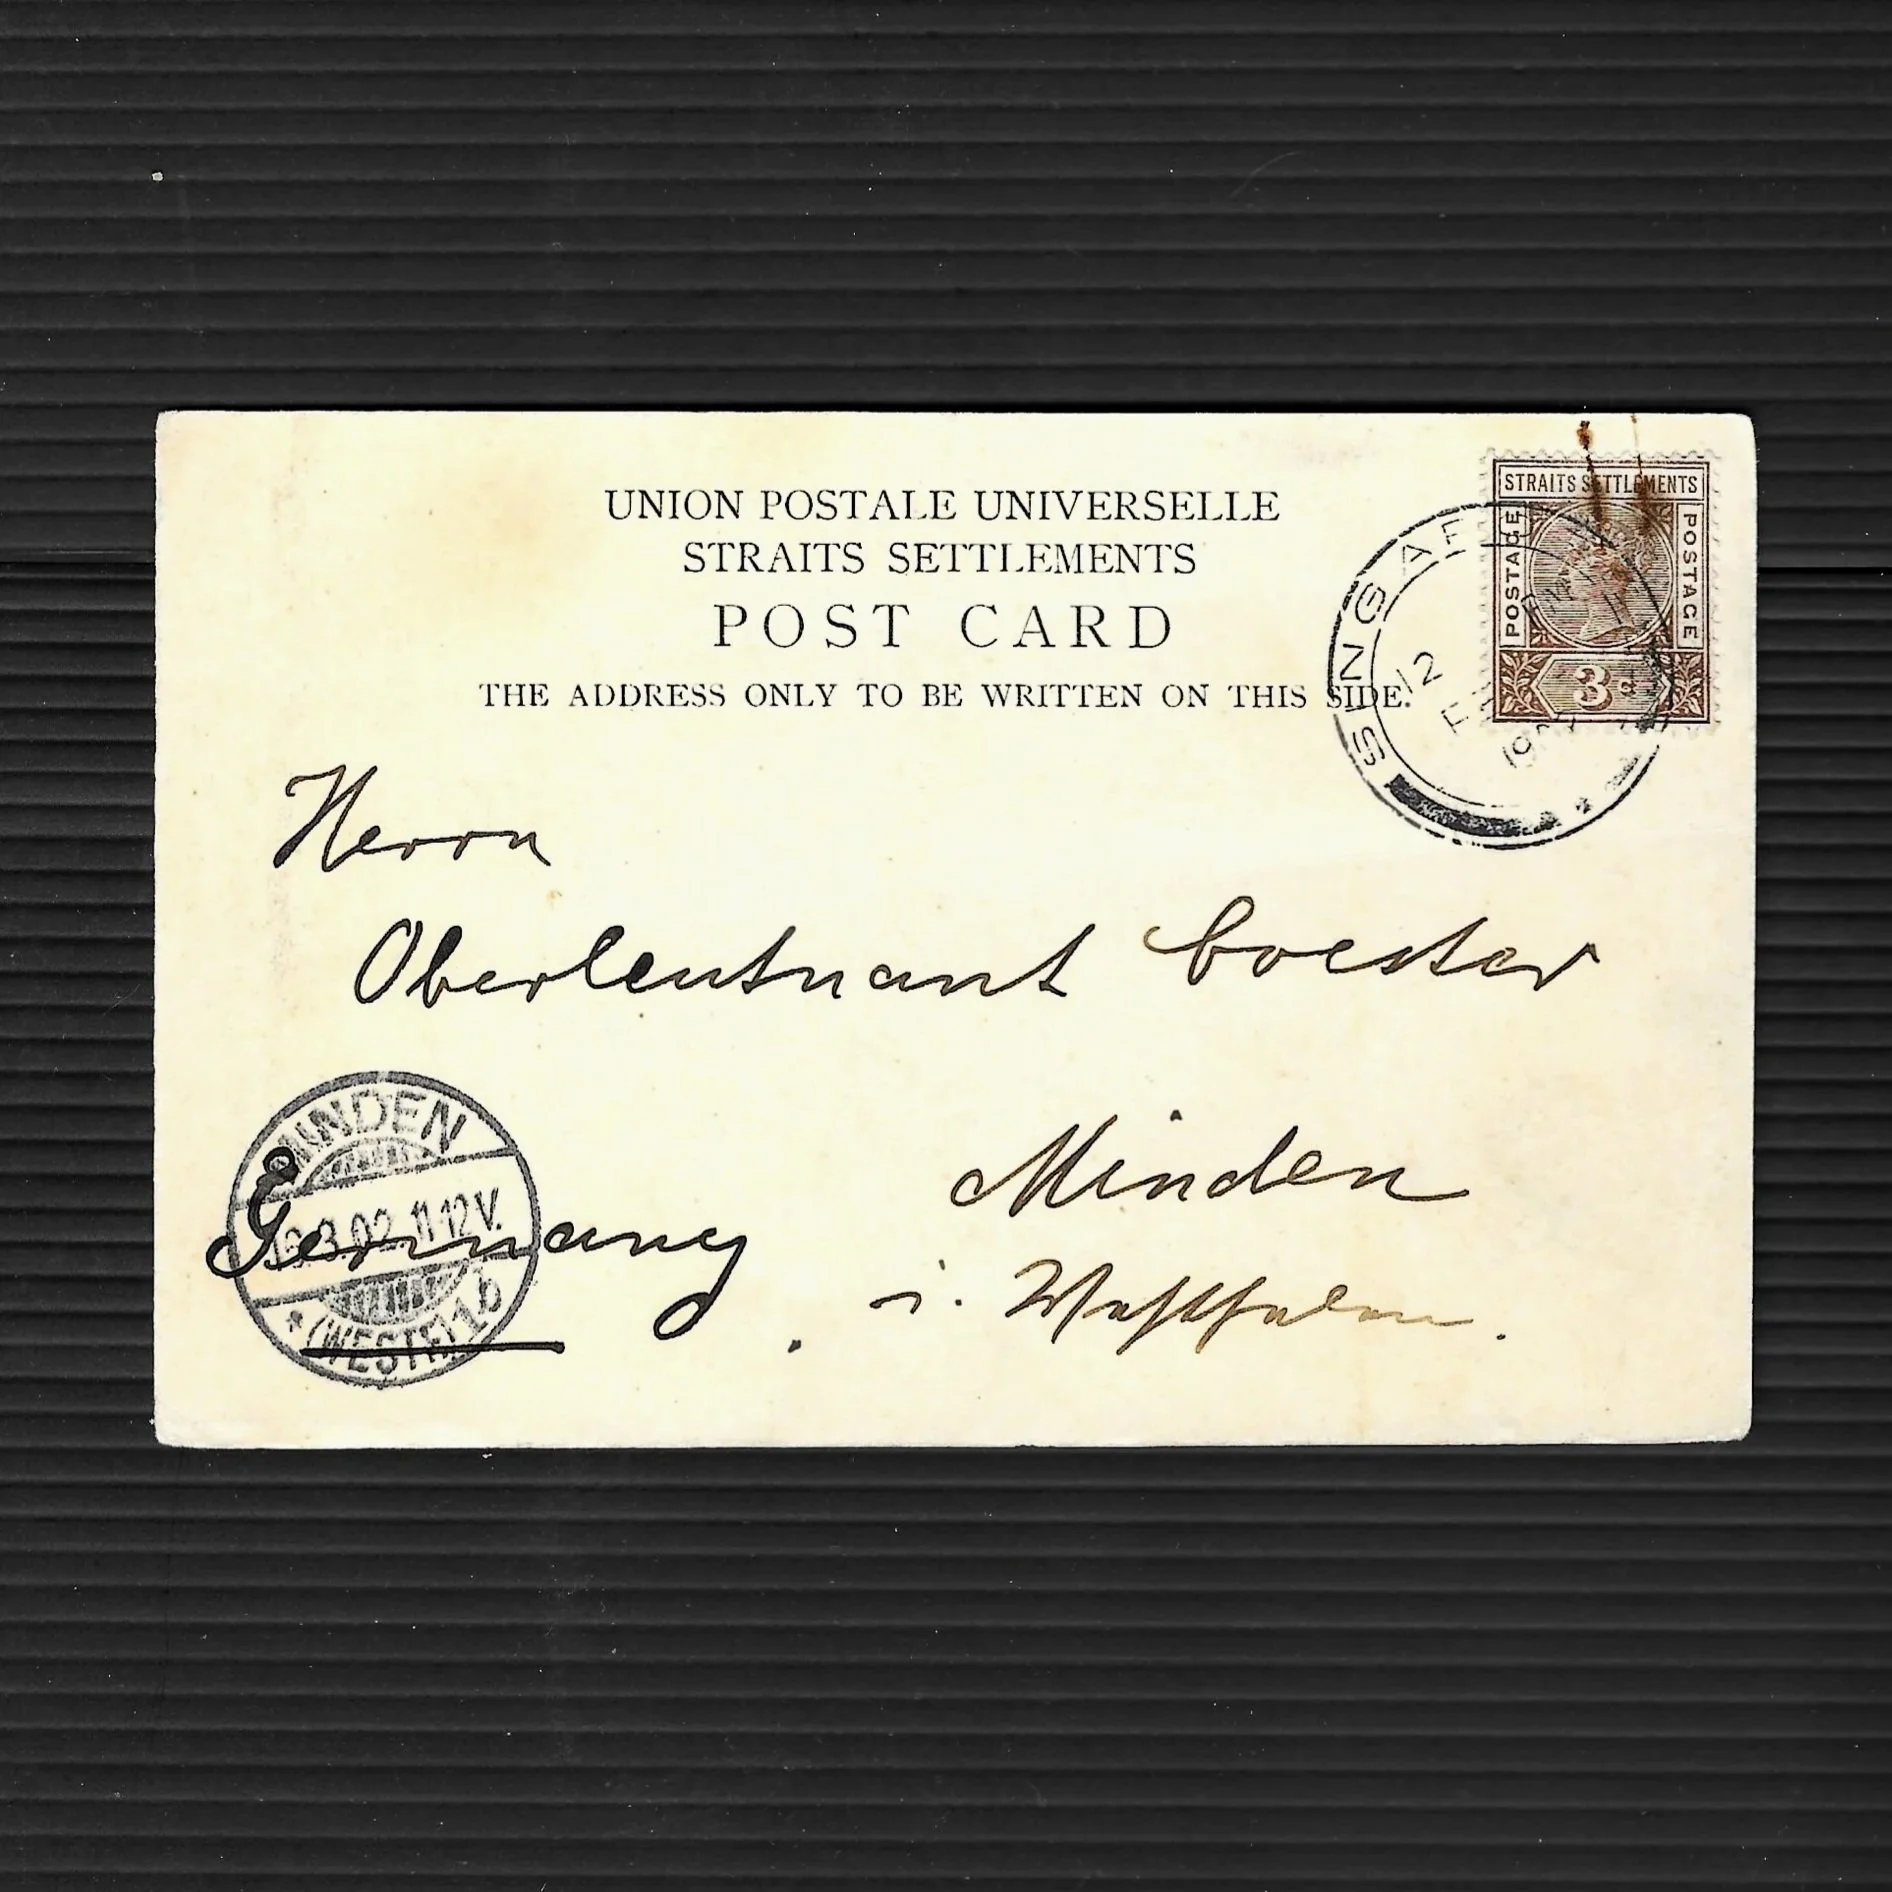 UNION POSTALE UNIVERSELLE
STRAITS SETTLEMENTS
POST CARD
THE ADDRESS ONLY TO BE WRITTEN ON THIS SIDE.
STRAITS SETTLEMENTS
POSTAGE
POSTAGE
3
SINGAP
12
Herrn
Oberleutnant Coester
Minden
i. Westfalen.
Germany
MINDEN
3.02.11-12V.
(WESTF) 1b